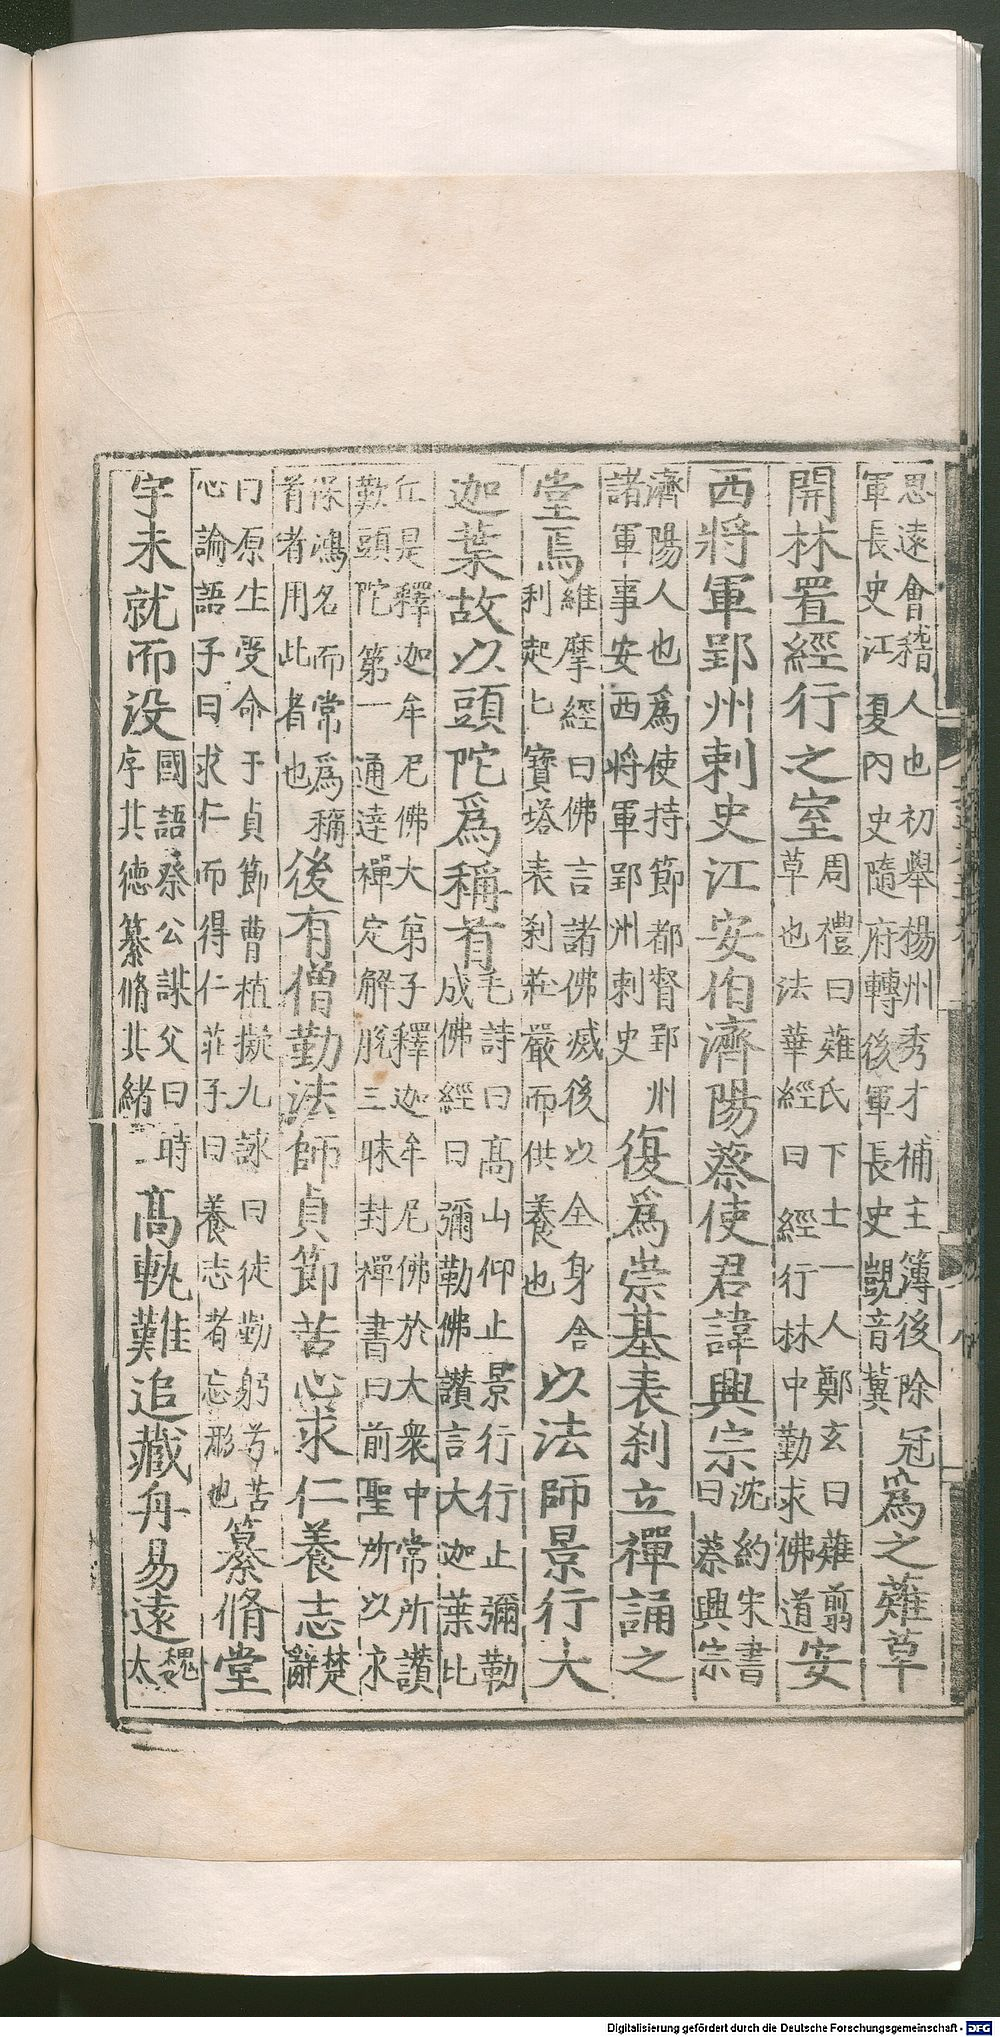 思遠會稽人也初舉楊州秀才補主簿後除冠
軍長史江夏內史隨府轉後軍長史覬音冀爲之薙草
開林置經行之室周禮曰薙氏下士一人鄭玄曰薙翦
草也法華經曰經行林中勤求佛道安
西將軍郢州刺史江安伯濟陽蔡使君諱興宗沈約宋書
曰蔡興宗
濟陽人也爲使持節都督郢州
諸軍事安西將軍郢州刺史復爲崇基表刹立禪誦之
堂焉維摩經曰佛言諸佛滅後以全身舍
利起七寶塔表刹莊嚴而供養也以法師景行大
迦葉故以頭陀爲稱首毛詩曰高山仰止景行行止彌勒
成佛經曰彌勒佛讃言大迦葉比
丘是釋迦牟尼佛大弟子釋迦牟尼佛於大衆中常所讃
歎頭陀第一通達禪定解脫三昧封禪書曰前聖所以永
保鴻名而常爲稱
首者用此者也後有僧勤法師貞節苦心求仁養志楚
辭
曰原生受命于貞節曹植擬九詠曰徒勤躬兮苦
心論語子曰求仁而得仁莊子曰養志者忘形也纂脩堂
宇未就而没國語祭公謀父曰時
序其德纂脩其緒高軌難追藏舟易遠魏
太
Digitalisierung gefördert durch die Deutsche Forschungsgemeinschaft - DFG